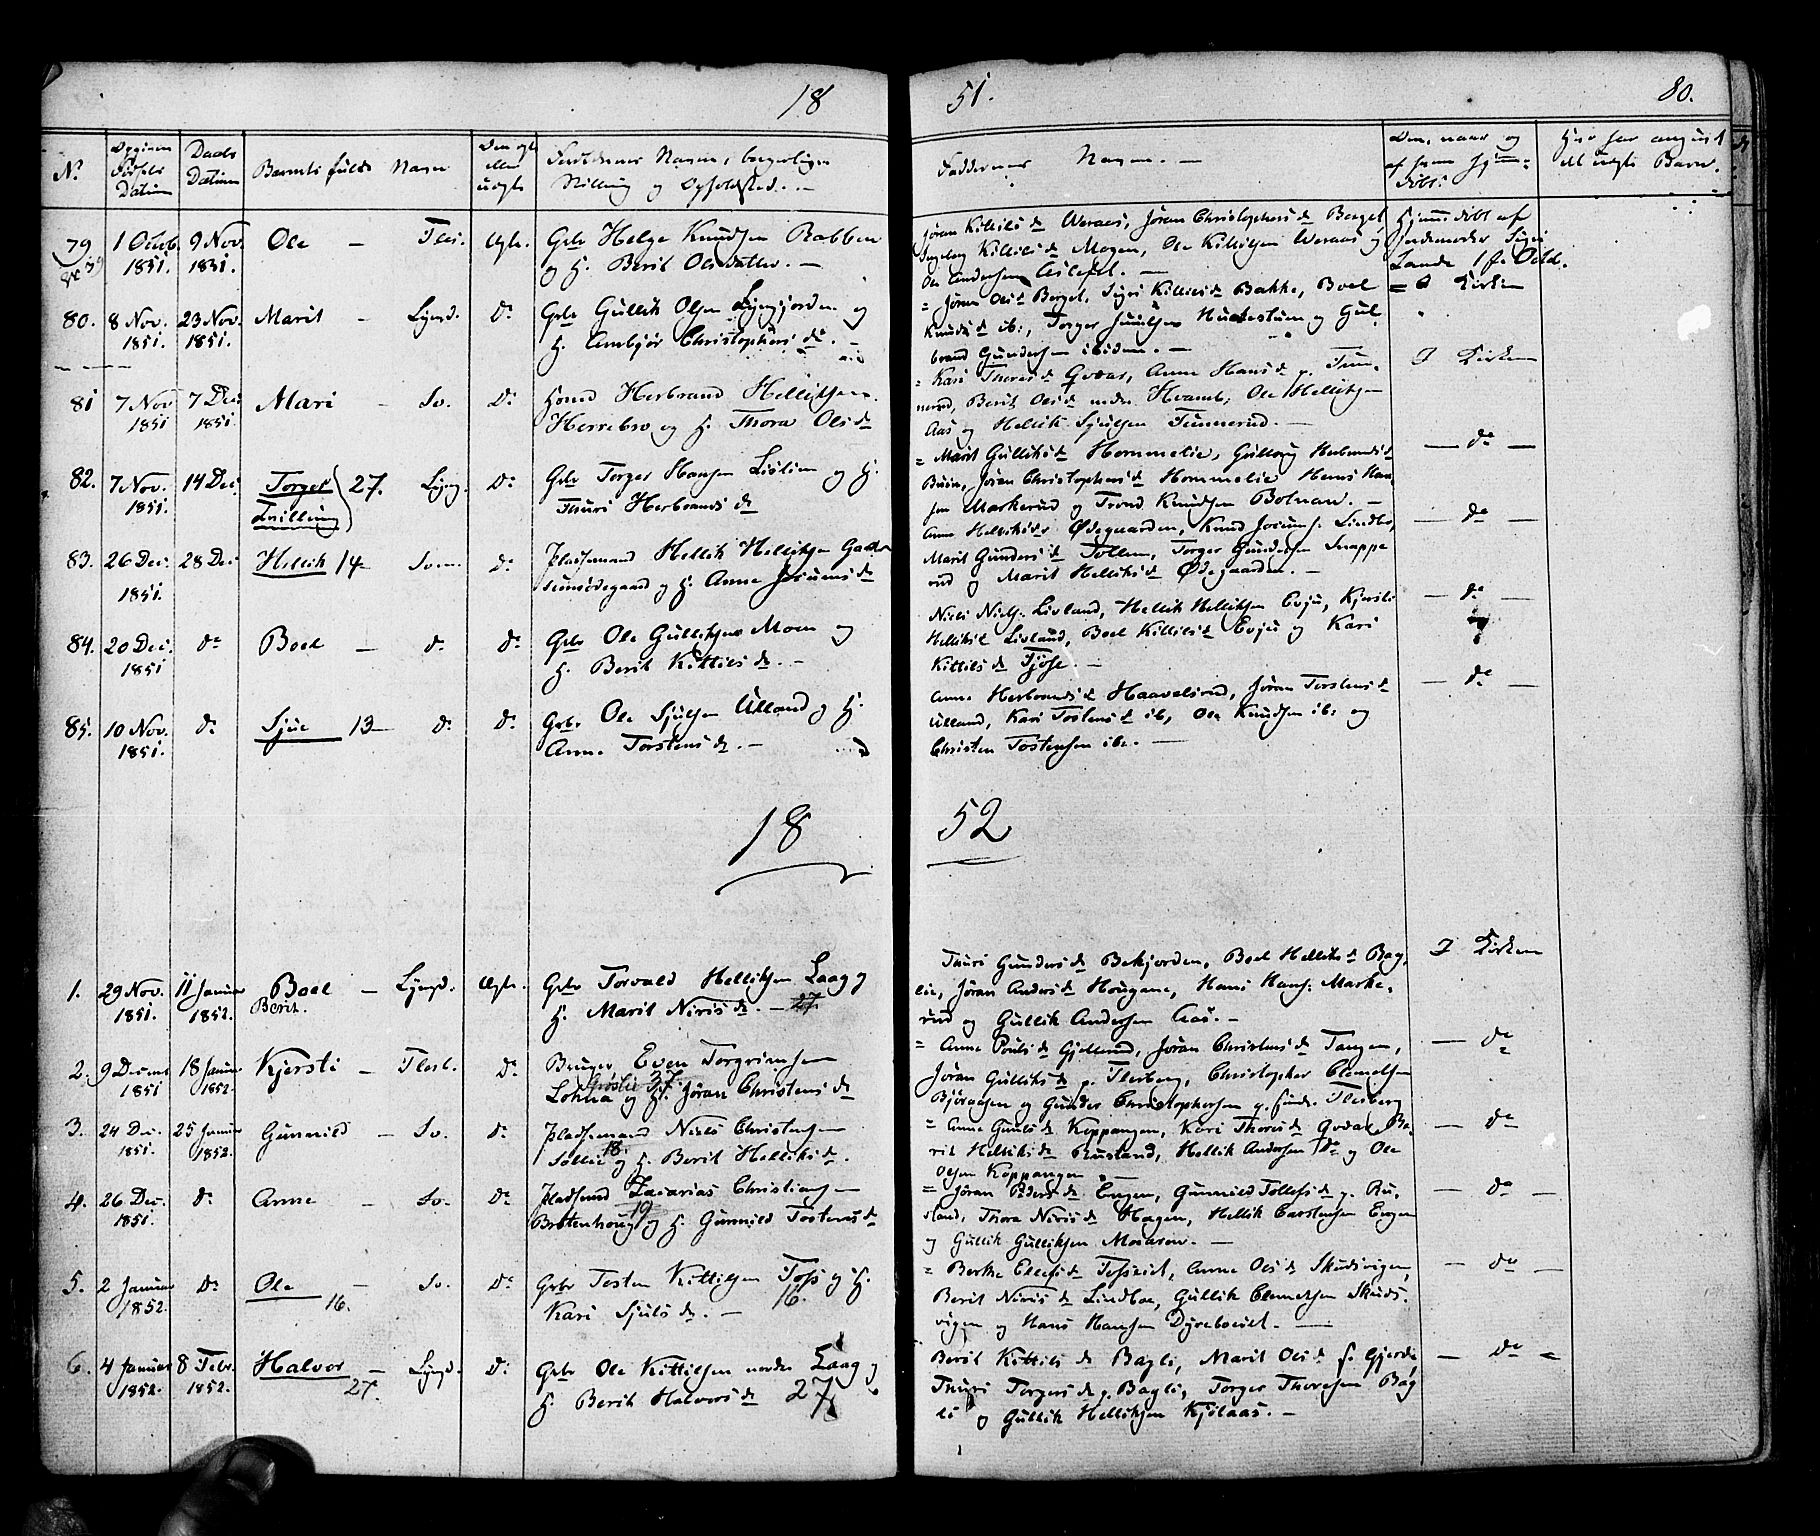 18 51. 80.
No Opgiven Fødsels Datum Daabs Datum Barnets fulde Navn Om ægte eller uægte Forældrenes Navne, borgerlige Stilling og Opholdsted. Faddernes Navne. Om, naar og af hvem hjemmedøbt
79. 1 Octob. 1851. 9 Nov. 1851. Ole — Fles. Ægte. Gbr Helge Knudsen Rabben
og H. Berit Olsdatter. —
Jøran Killilsd Weraas, Jøran Christophersd Berget,
Ingeborg Killilsd Mogen, Ole Killilsen Weraas og
Ole Andersen
Hjemmedøbt af
Jordemoder Sigri
Lande
80. 8 Nov. 1851. 23 Nov. 1851. Marit — Lyngd. Do Gbr Gullik Olsen og
H. Ambjør Christophersd. —
= Jøran Olsd Berget, Sigri Killilsd Bakke, Boel
Knudsd ib:, Torger Juulsen og Gul-
brand Gundersen ibidem. —
I Kirken
81 7 Nov 1851 7 Dec 1851. Mari — Sv. Do Huusmd Herbrand Hellicksen
Herrebro og H. Thora Olsd
= Kari Thoresd Qvaas, Anne Hansd p. Tun-
nerud, Berit Olsd nedre Hvamb, Ole Hellicksen
Aas og Hellik Sjulsen Tunnerud. —
I Kirken
82. 7 Nov. 1851. 14 Dec. Torger 27. Lyng. Do Gbr Torger Hansen Lislien og H.
Tvilling Thuri Herbrandsd
= Marit Gulliksd Hommelie, Gullaug Herbrandsd
Buin, Jøran Christophersd Hommelie Hans Han-
sen Markerud og Trond Knudsen Bolnan. —
— do —
83. 26 Dec. 1851. 28 Dec. Hellik 14 Svenn. do Pladsmand Hellik Hellicksen
og H. Anne
Anne Helliksdr Ødegaarden, Knud
Marit Gundersd Tollen, Torger Gundersen Snappe
rud og Marit Helliksd Ødegaarden. —
— do —
84. 20 Dec. 1851 do Boel — do Do Gbr Ole Gulliksen Moen og
H. Berit Kittilsd. —
Niels Niels. Livland, Hellik Helliksen Evju, Kjersti
Helliksd Livland, Boel Killilsd Evju og Kari
Kittilsd Fjøse. —
— do —
85. 10 Nov. 1851. do Sjul 13 do Do Gbr Ole Sjulsen Ulland og H.
Anne Torstensd. —
Anne Herbrandsd Haavelsrud, Jøran Torstensd
Ulland, Kari Tostensd ib, Ole Knudsen ib: og
Christen Tostensen ib. —
— do —
18 52
1. 29 Nov. 1851. 11 Januar 1852. Boel — Lyngd. Ægte. Gbr Torvald Helliksen Laag og
Berit. H. Marit Nirisd. — 27.
Thuri Gundersd Bekjorden, Boel Helliksd Bag-
lie, Jøran Andersd Hougene, Hans Hans. Marke-
rud og Gullik Andersen Aas. —
I Kirken
2. 9 Decemb 1851 18 Januar 1852. Kjersti — Flesb. Do Bruger Even Torgrimsen
Lohna og H. Jøran Christensd
= Anne Poulsd Gjellund, Jøran Christensd Tangen,
Jøran Gulliksd p. Flesberg, Christopher Clemetsen
Bjøraasen og Gunder Christophersen p. Flesberg
— do
3. 24 Dec. 1851. 25 Januar 1852. Gunnild — Sv. do Pladsemand Niels Christensen
Sollie og H. Berit Helliksd. 18.
= Anne Gulsd Koppangen, Kari Thoresd Qvaas, Be-
rit Helliksd Rustand, Hellik Andersen Do og Ole
Olsen Koppangen —
— do
4. 26 Dec. 1851. do Anne — Sv. Do Pladsmd Zacarias Christiansen
Bratenhoug og H. Gunnild Tostensd 19
= Jøran Pedersd Engen, Gunnild Tollefsd p. Ru-
stand, Thora Nirisd Hagen, Hellik Carstensen Engen
og Gullik Gulliksen Moearen. —
— do —
5. 2 Januar 1852. Do Ole 16. — Sv. Do Gbr Tosten Kittilsen Tofs og H.
Kari Sjulsd. — 16.
= Berthe Ellefsd Anne Olsd Skudsvigen,
Berit Nirisd Lindboe, Gullik Clemetsen Skuds-
vigen og Hans Hansen Dyreboeiet. —
— do —
6. 4 Januar 1852. 8 Febr. 1852. Halvor — 27. Lyngd. Do Gbr Ole Kittilsen nordre Laag og
H. Berit Halvorsd 27
Berit Kittilsd Bagli, Marit Olsd p. Gjerde,
Thuri Torgersd p. Bagli, Torger Thoresen Bag
li og Gullik Helliksen Kjølaas. —
— do